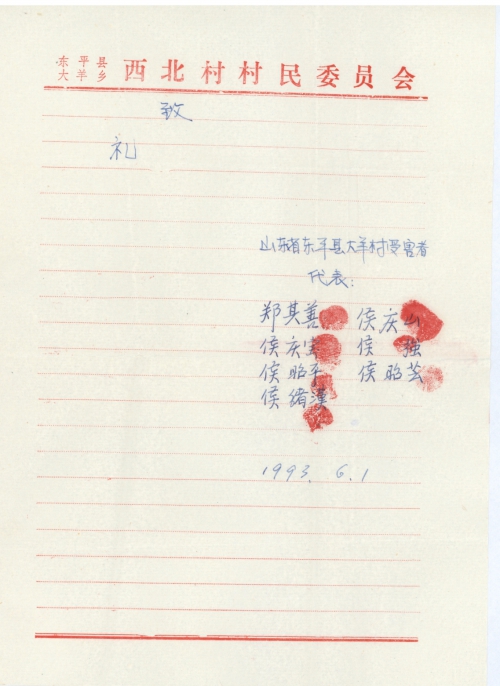 东平县
大羊乡 西北村村民委员会
致
礼
山东省东平县大羊村受害者
代表:
郑其善 侯庆山
侯庆 侯 强
侯昭平 侯昭芸
侯绪漢
1993. 6. 1